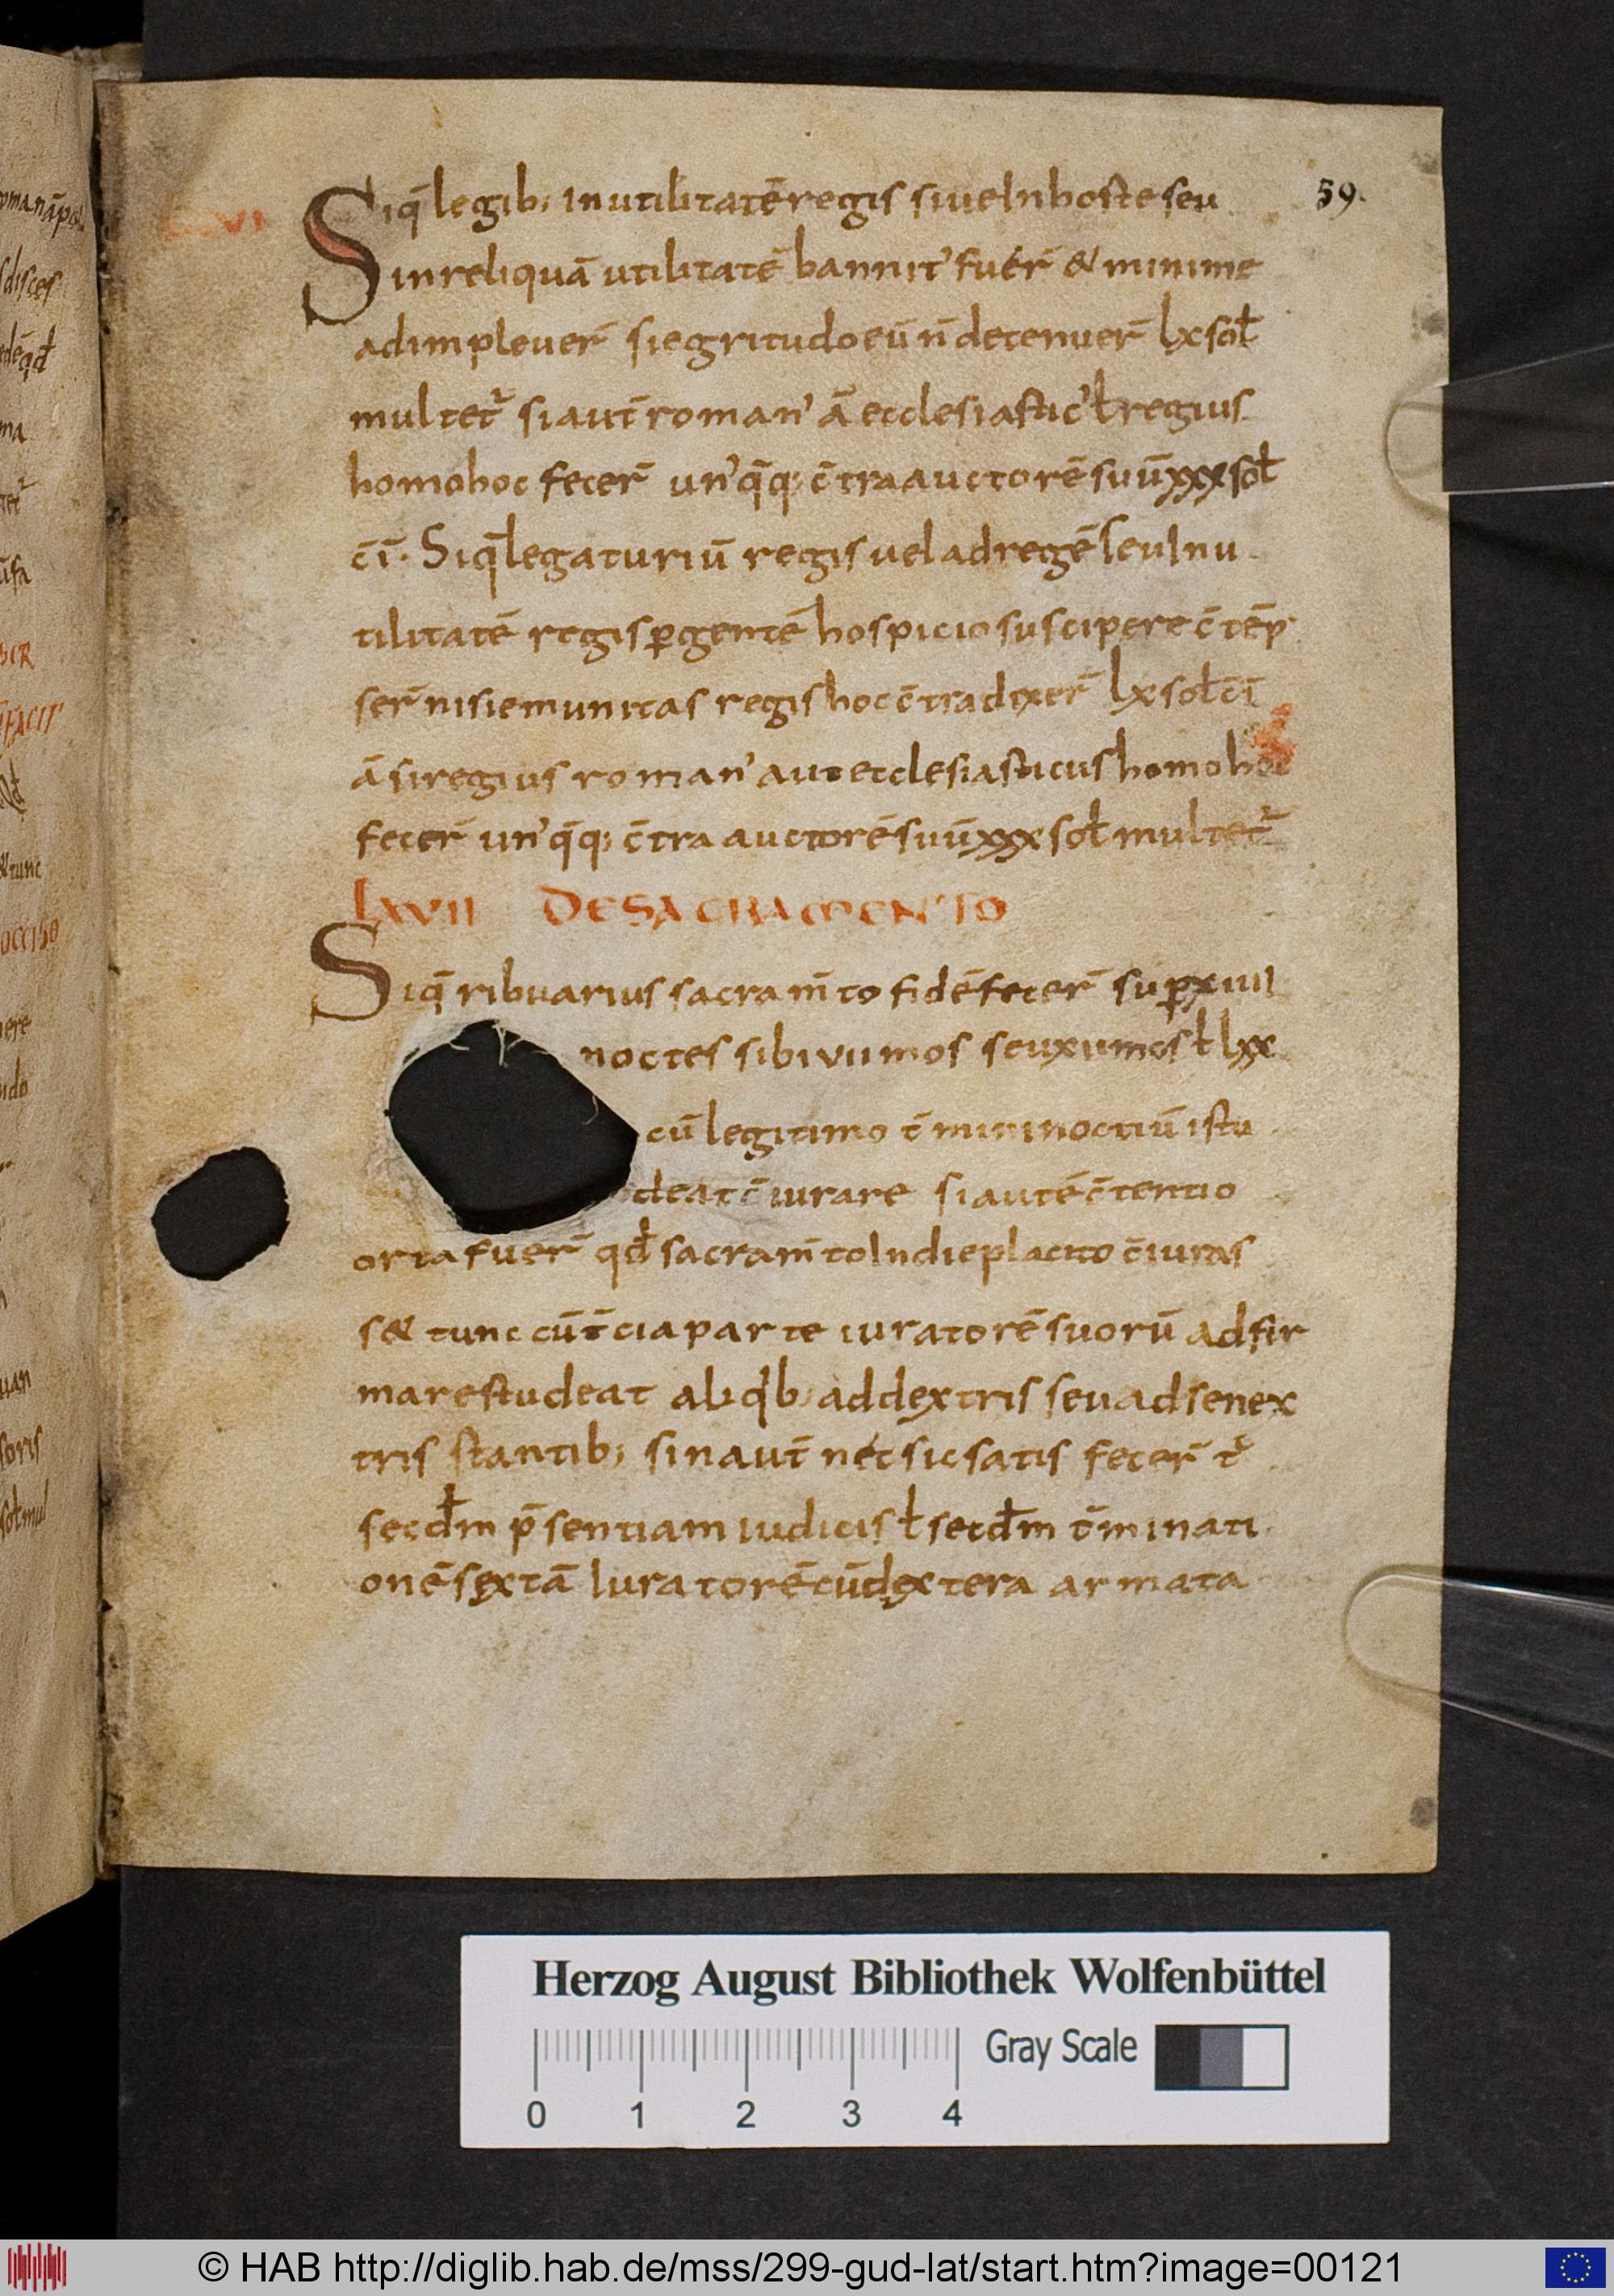 59.
Siq̄ legib; in utilitatē regis siue In hoste seu
in reliquā utilitatē bannit' fuer̄ & minime
adimpleuer̄ si egritudo eū n̄ detenuer̄ lx sol̄
multet᷑ si aut̄ roman' ā ecclesiastic' ł regius
homo hoc fecer̄ un'q̄q; c̄tra auctorē suū xxx sol̄
c̄ī. Siq̄ legaturiū regis uel ad regē seu In u
tilitatē regis ꝑgentē hospicio suscipere c̄tēp
ser̄ nisi emunitas regis hoc c̄tradixer̄ lx sol̄ c̄ī
ā si regius roman' aut ecclesiasticus homo hoc
fecer̄ un'q̄q; c̄tra auctorē suū xxx sol̄ multet᷑
LXVII DE SACRAMENTO
Siq̄ ribuarius sacram̄to fidē fecer̄ suꝑ xiiii
noctes sibi vii mos seu xii mos ł lxx
cū legitimo t̄mini noctiū istu
deat c̄iurare si autē c̄tentio
orta fuer̄ qđ sacram̄to In die placito c̄iuras
s& tunc cū t̄cia parte iuratorē suorū adfir
mare studeat aliq'b; ad dextris seu ad senex
tris stantib; sin aut̄ nec sic satis fecer̄ t᷑
secđm p̄sentiam iudicis ł secđm t̄minati
onē sextā Iuratorē cū dextera armata
Herzog August Bibliothek Wolfenbüttel
0 1 2 3 4 Gray Scale
© HAB http://diglib.hab.de/mss/299-gud-lat/start.htm?image=00121